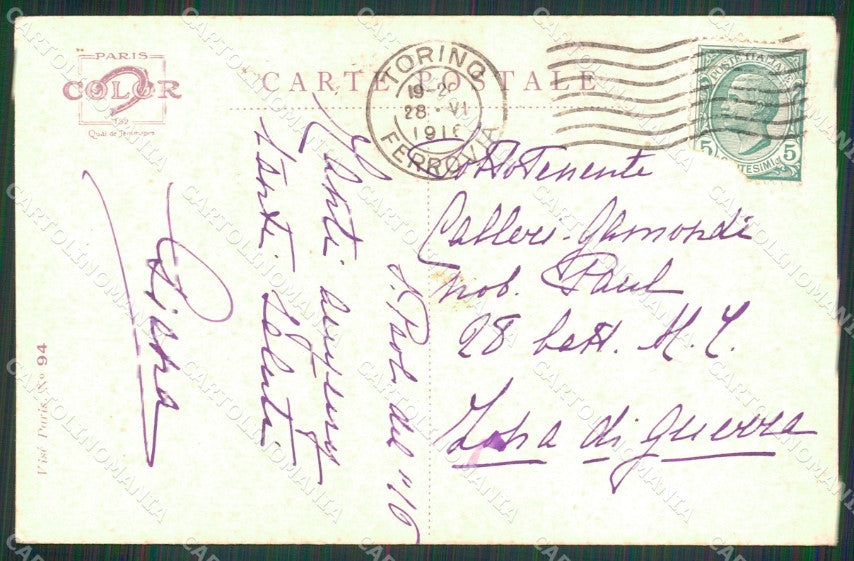 PARIS
COLOR
152
Quai de Jemmapes
CARTE POSTALE
TORINO
19-2
28 · VI
1916
FERROVIA
POSTE ITALIANE
5 CENTESIMI 5
SottoTenente
Calleri-Gamondi
nob. Paul
28 batt. M. C.
Zona di guerra
S. Paol. del '16
Tanti auguri
tanti saluti
Visé Paris. Nº 94
CARTOLINOMANIA